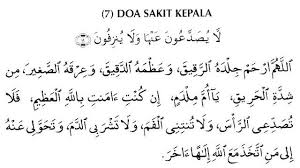 (7) DOA SAKIT KEPALA
لَا يُصَدَّعُونَ عَنْهَا وَلَا يُنْزِفُونَ
اَللّٰهُمَّ ارْحَمْ جِلْدَهُ الرَّقِيْقَ، وَعَظْمَهُ الدَّقِيْقَ، وَعِرْقَهُ الصَّغِيْرَ، مِنْ
شِدَّةِ الْحَرِيْقِ، يَاأُمَّ مِلْدَمٍ، إِنْ كُنْتِ ءَامَنْتِ بِاللّٰهِ الْعَظِيْمِ، فَلَا
تُصَدِّعِى الرَّأْسَ، وَلَا تُنْتِنِى الْفَمَ، وَلَا تَشْرَبِى الدَّمَ، وَتَحَوَّلِى عَنْهُ
إِلَى مَنِ اتَّخَذَ مَعَ اللّٰهِ إِلٰهًا ءَاخَرَ.